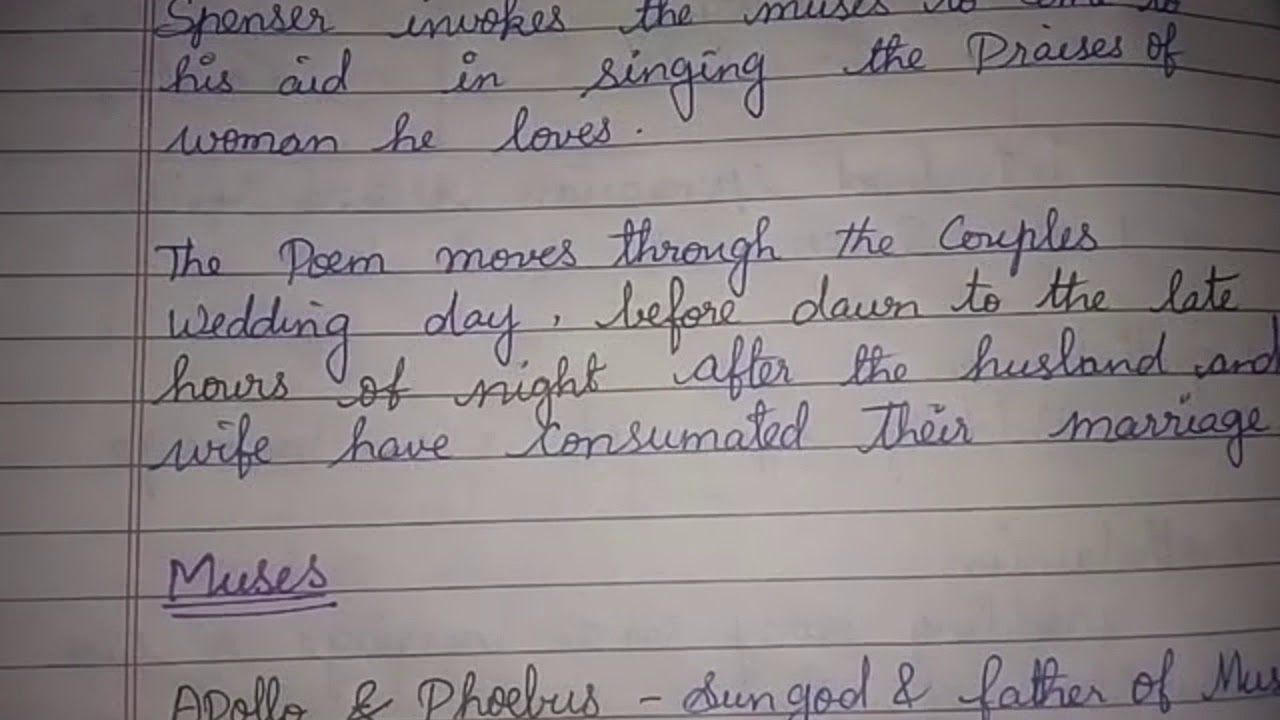 Spenser invokes the muses to come to
his aid in singing the Praises of
woman he loves.
The Poem moves through the Couples
wedding day, before dawn to the late
hours of night after the husland and
wife have Consumated Their marriage
Muses
Apollo & Phoebus - Sungod & father of Mus